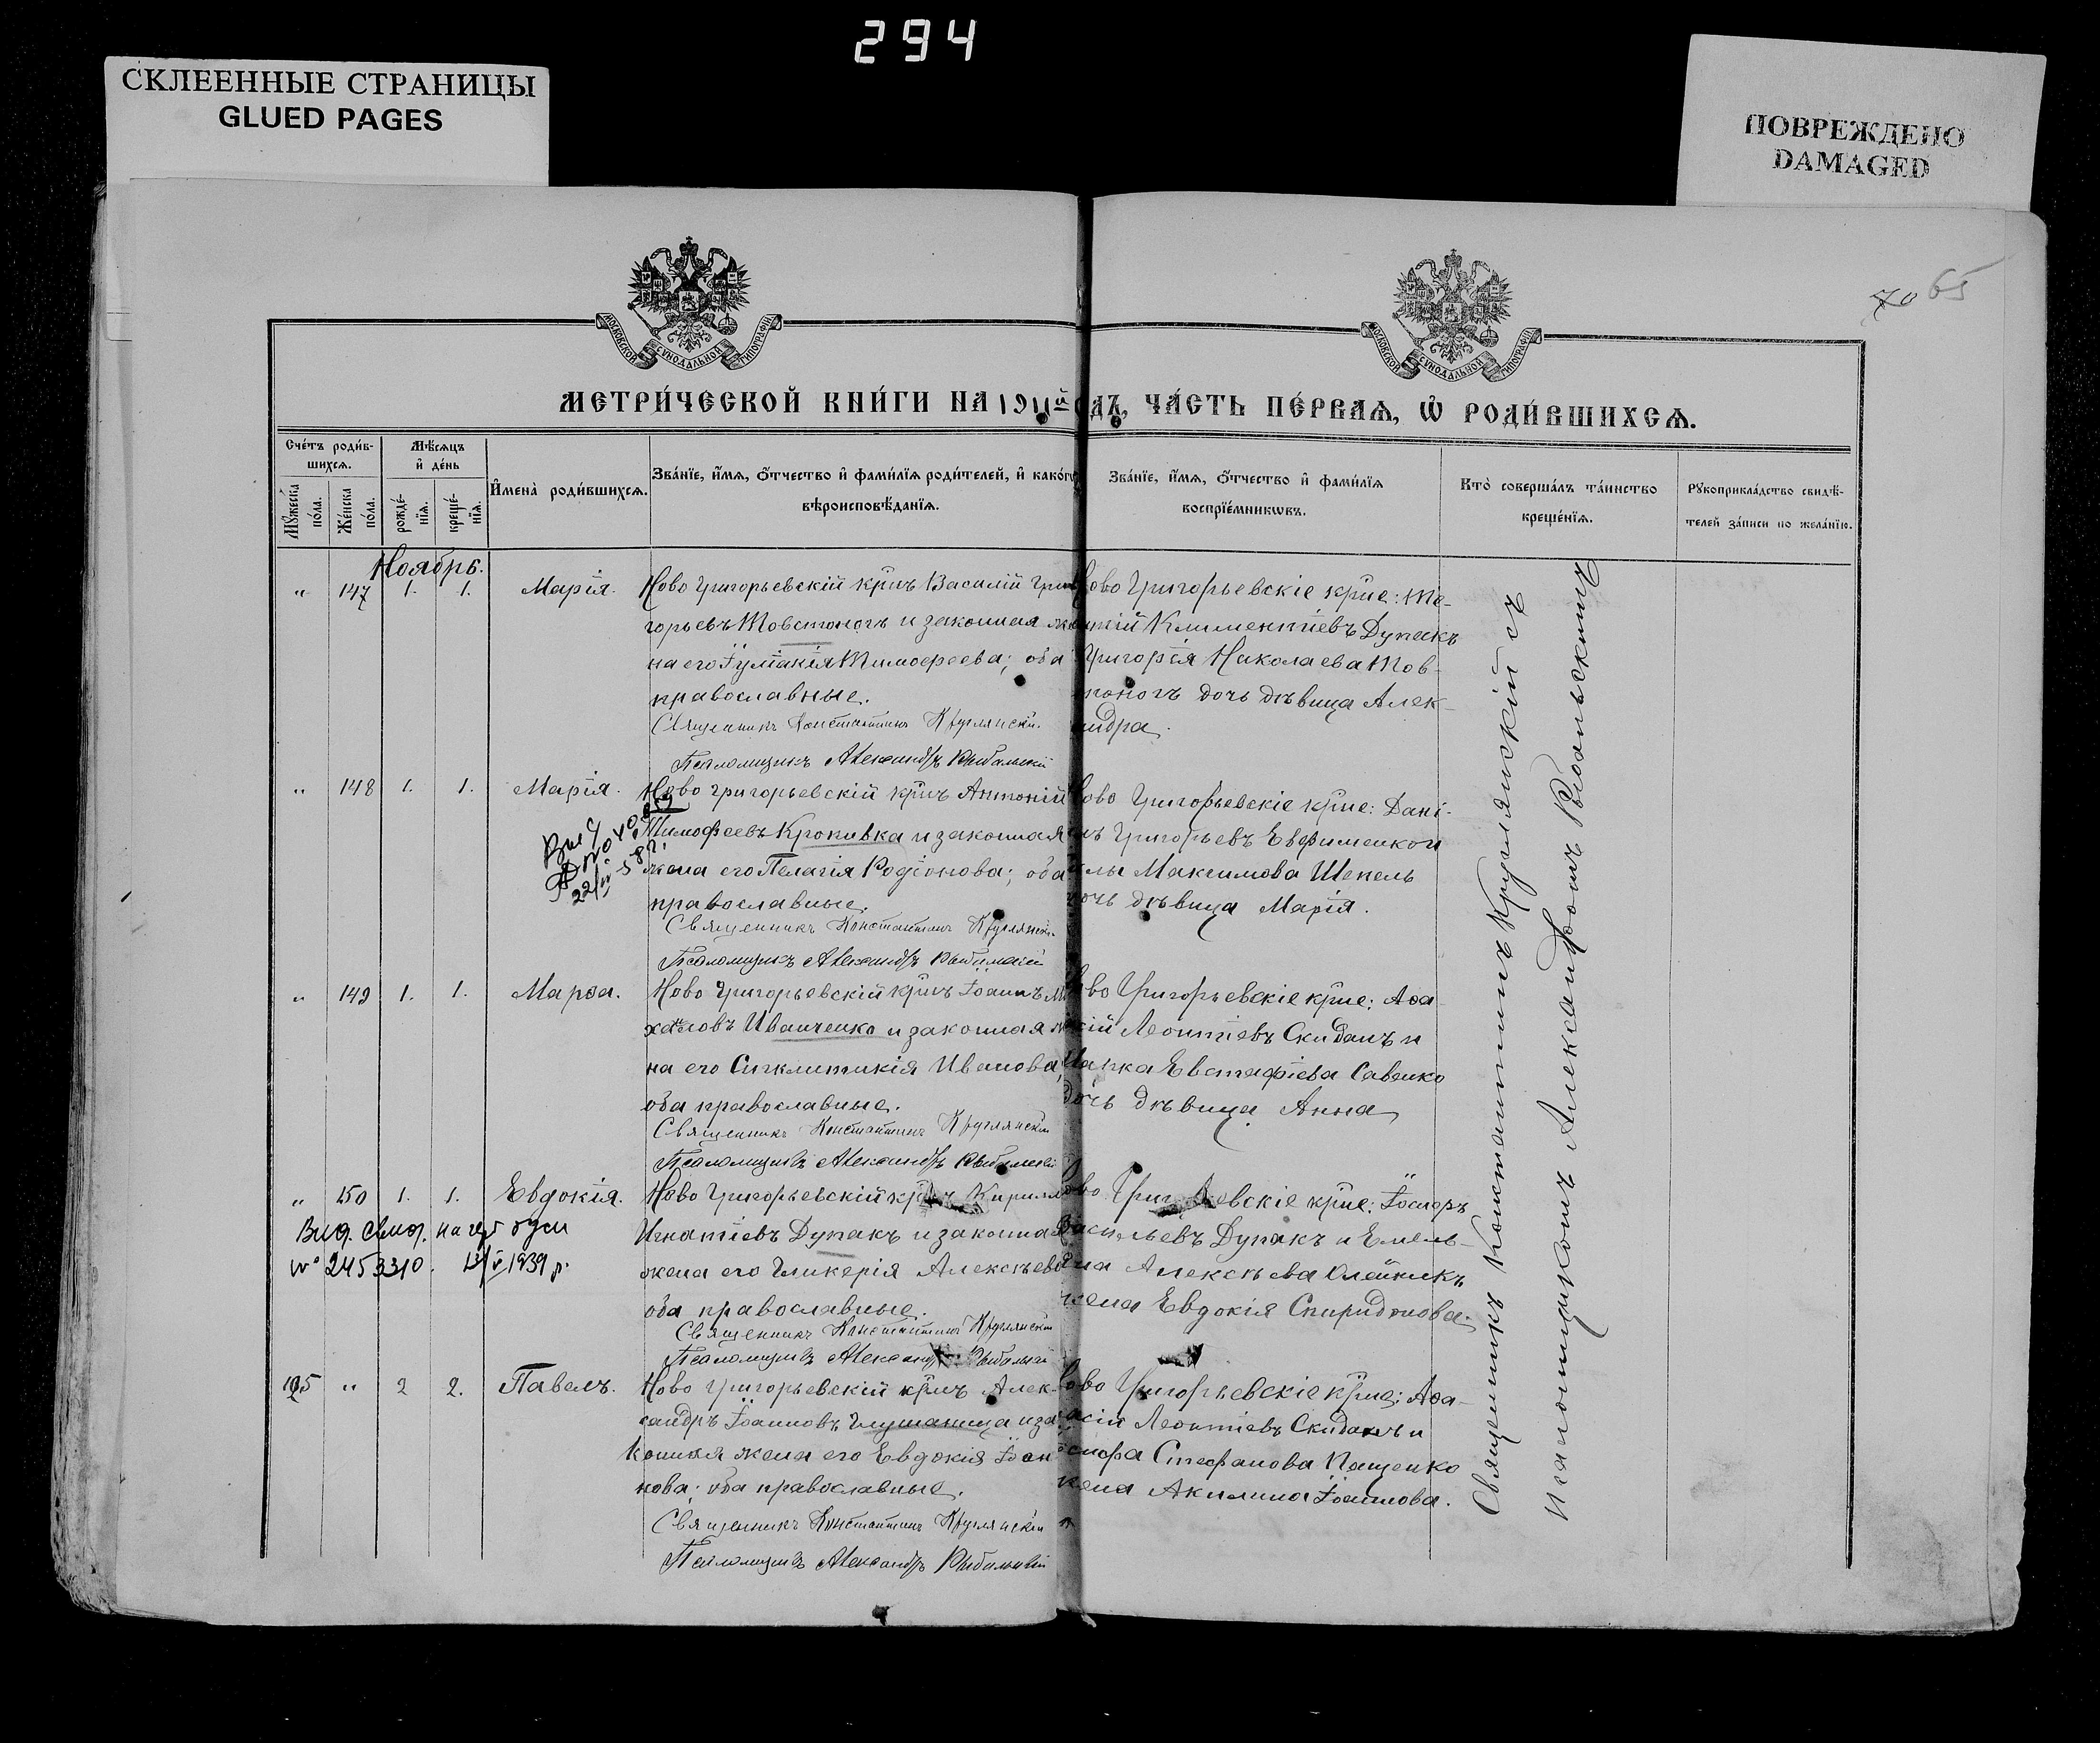 294
СКЛЕЕННЫЕ СТРАНИЦЫ
GLUED PAGES
ПОВРЕЖДЕНО
DAMAGED
70 65
МОСКОВСКОЙ СѴНОДАЛЬНОЙ ТИПОГРАФІИ
МОСКОВСКОЙ СѴНОДАЛЬНОЙ ТИПОГРАФІИ
МЕТРИ́ЧЕСКОЙ КНИ́ГИ НА 1911й
ГОДЪ, ЧА́СТЬ ПЕ́РВАѦ, Ѡ҆ РОДИ́ВШИХСѦ.
Сче́тъ роди́в-
шихсѧ.
Мꙋ́жеска по́ла.
Же́нска по́ла.
Мѣ́сѧцъ
и҆ де́нь
рожде́-
нїѧ.
креще́-
нїѧ.
И҆мена̀ роди́вшихсѧ.
Зва́нїе, и҆́мѧ, ѻ҆́тчество и҆ фами́лїѧ роди́телей, и҆ како́гѡ
вѣроисповѣ́данїѧ.
Зва́нїе, и҆́мѧ, ѻ҆́тчество и҆ фами́лїѧ
воспрїе́мникѡвъ.
Кто̀ соверша́лъ та́инство
креще́нїѧ.
Рꙋкоприкла́дство свидѣ́-
телей за́писи по жела́нїю.
Ноябрь.
" 147 1. 1. Марія.
Ново Григорьевскій кр̃нъ Василій Гри
горьевъ Товстоногъ и законная же
на его Іуліанія Тимофеева; оба
православные.
Священникъ Константинъ Круглянскій.
Псаломщикъ Александръ Рыбальскій
Ново Григорьевскіе кр̃не: Ме-
нтій Климентіевъ Дупакъ
Григорія Николаева Тов-
стоногъ дочь дѣвица Алек-
сандра.
" 148 1. 1. Марія.
Ново Григорьевскій кр̃нъ Антоній
Тимофеевъ Кропивка и законная
жена его Пелагія Родіонова; оба
православные.
Священникъ Константинъ Круглянскій
Псаломщикъ Александръ Рыбальскій
Ново Григорьевскіе кр̃не: Дані-
илъ Григорьевъ Евфименко и
Максимова Шепель
дочь дѣвица Марія.
22/IV 58 г.
" 149 1. 1. Марѳа.
Ново Григорьевскій кр̃нъ Іоаннъ Ми
хайловъ Иванченко и законная же
на его Сигклитикія Иванова,
оба православные.
Священникъ Константинъ Круглянскій
Псаломщикъ Александръ Рыбальскій
Ново Григорьевскіе кр̃не: Аѳа-
насій Леонтіевъ Скиданъ и
Евстафіева Савенко
дочь дѣвица Анна
" 150 1. 1. Евдокія.
Вид. свид.
№ 2453310. 1939 р.
Ново Григорьевскій кр̃нъ Кириллъ
Игнатіевъ Дупакъ и законная
жена его Гликерія Алексѣева
оба православные.
Священникъ Константинъ Круглянскій
Псаломщикъ Александръ Рыбальскій
Ново Григорьевскіе кр̃не: Іосифъ
Васильевъ Дупакъ и Емель-
яна Алексѣева Олейникъ
жена Евдокія Спиридонова.
125 " 2 2. Павелъ.
Ново Григорьевскій кр̃нъ Алек-
сандръ Іоанновъ Глушаница и за
конная жена его Евдокія Іоан
нова; оба православные.
Священникъ Константинъ Круглянскій
Псаломщикъ Александръ Рыбальскій
Ново Григорьевскіе кр̃не: Аѳа-
насій Леонтіевъ Скиданъ и
Іосифа Стефанова Пащенко
жена Акилина Іоаннова.
Священникъ Константинъ Круглянскій съ
Псаломщикомъ Александромъ Рыбальскимъ